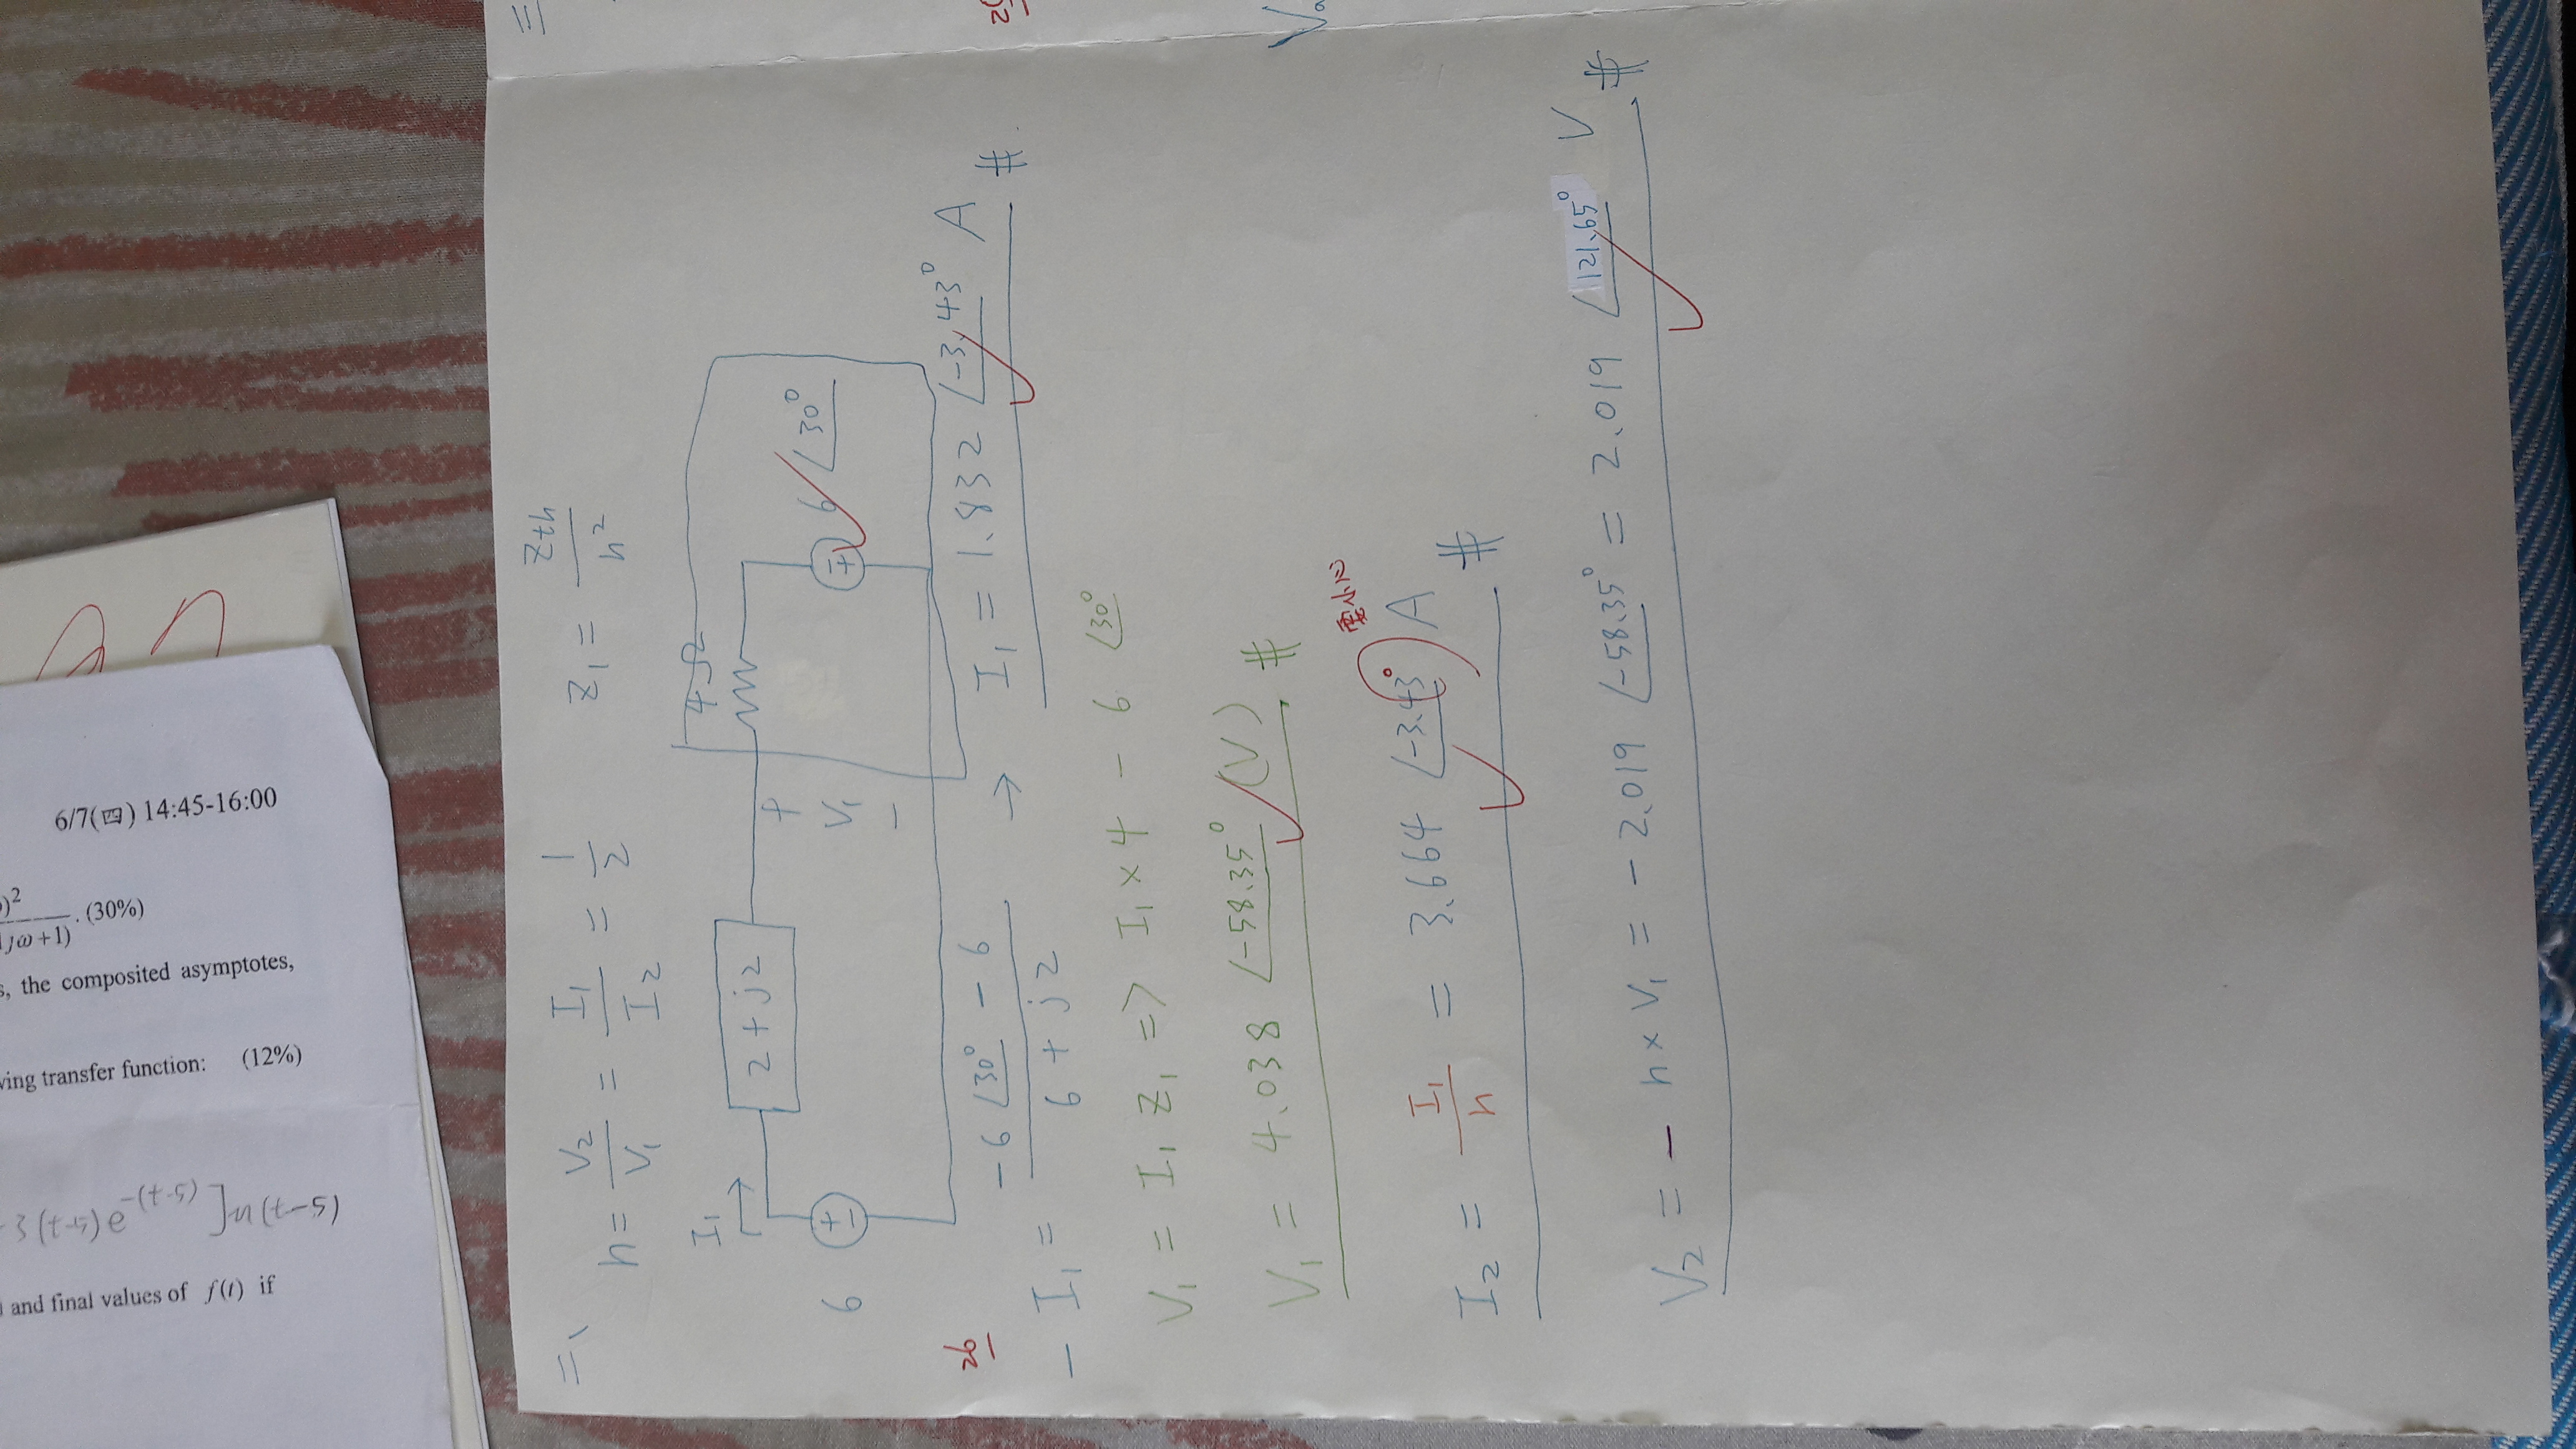 6/7(四) 14:45-16:00
)²
jω+1) . (30%)
s, the composited asymptotes,
ving transfer function: (12%)
3(t-5)e^-(t-5)]u(t-5)
and final values of f(t) if
二、 n = V₂/V₁ = I₁/I₂ = 1/2 Z₁ = Zth/n²
I₁
4Ω
2+j2
+
V₁
−
6
6∠30°
26
-I₁ = (-6∠30° - 6)/(6+j2) → I₁ = 1.832∠-3.43° A #
V₁ = I₁ Z₁ => I₁×4 - 6∠30°
V₁ = 4.038∠-58.35° (V) #
要小心
I₂ = I₁/n = 3.664∠-3.43° A #
V₂ = - n×V₁ = -2.019∠-58.35° = 2.019∠121.65° V #